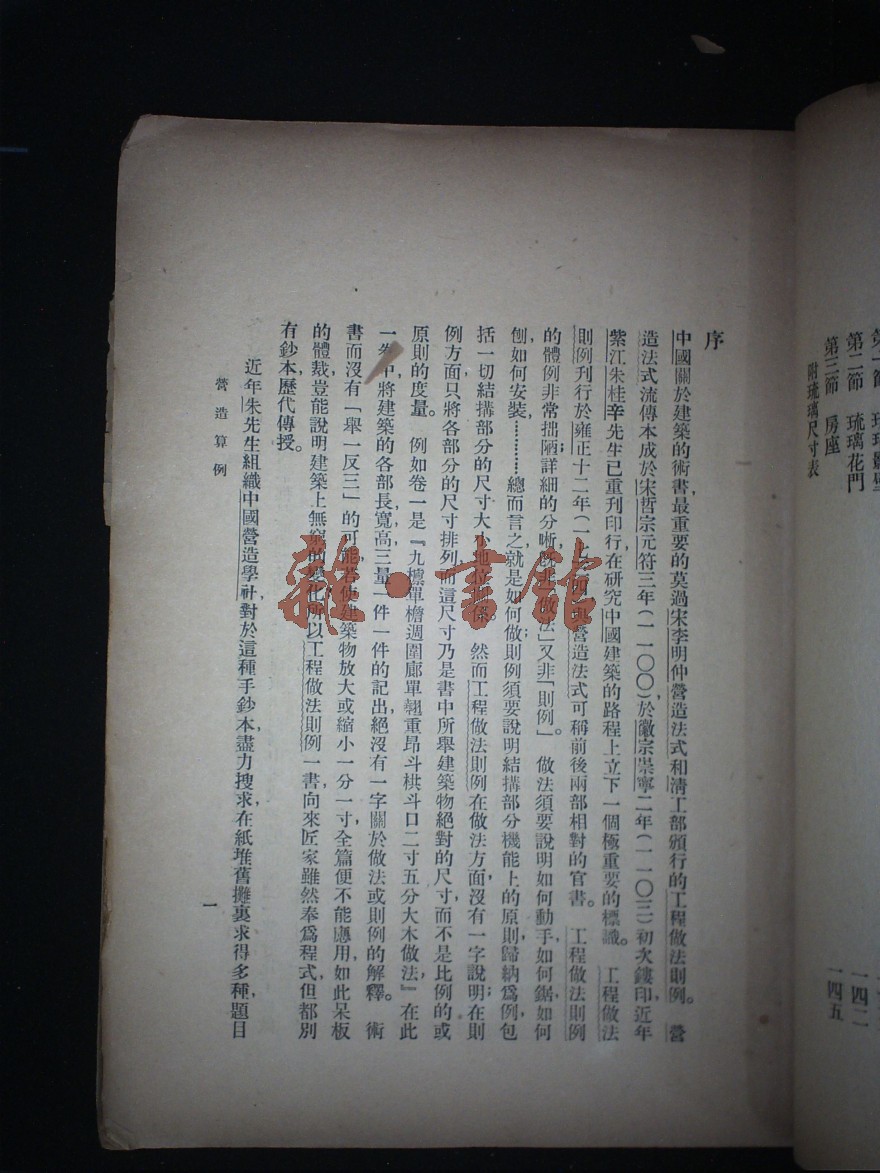 第二節 琉璃花門 一四二
第三節 房座 一四五
附琉璃尺寸表
序
中國關於建築的術書，最重要的莫過宋李明仲營造法式和清工部頒行的工程做法則例。 營
造法式流傳本成於宋哲宗元符三年（一一〇〇）於徽宗崇寧二年（一一〇三）初次鏤印，近年
紫江朱桂辛先生已重刊印行，在研究中國建築的路程上，立下一個極重要的標識。 工程做法
則例刊行於雍正十二年（一七 四 與營造法式可稱前後兩部相對的官書。 工程做法則例
的體例非常拙陋，詳細的分晰，既非「做法」又非「則例」。 做法須要說明如何動手，如何鋸，如何
刨，如何安裝…………總而言之，就是如何做；則例須要說明結構部分機能上的原則，歸納爲例，包
括一切結構部分的尺寸大小地位 係。 然而工程做法則例在做法方面，沒有一字說明；在則
例方面，只將各部分的尺寸排列，而這尺寸乃是書中所舉建築物絕對的尺寸，而不是比例的或
原則的度量。 例如卷一是『九檁單檐週圍廊單翹重昂斗栱斗口二寸五分大木做法』，在此
一 中，將建築的各部長，寬，高，三量，一件一件的記出，絕沒有一字關於做法或則例的解釋。 術
書而沒有「舉一反三」的可能，若使建築物放大或縮小一分一寸，全篇便不能應用，如此呆板
的體裁，豈能說明建築上無窮的變化，所以工程做法則例一書，向來匠家雖然奉爲程式，但都別
有鈔本，歷代傳授。
近年朱先生組織中國營造學社，對於這種手鈔本，盡力搜求，在紙堆舊攤裏求得多種，題目
營造算例
一
雜·書館